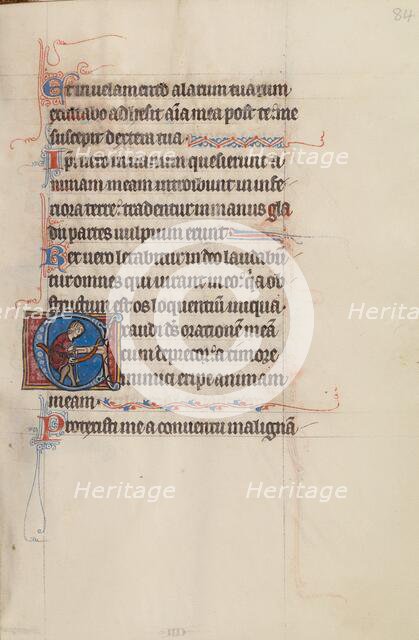 84
Et in velamento alarum tuarum
exultabo adhesit aīa mea post te: me
suscepit dextera tua.
Ipi vero in vanum quesierunt a
nimam meam introibunt in infe
riora terre: tradentur in manus gla
dii partes vulpium erunt.
Rex vero letabitur in deo laudabū
tur omnes qui iurant in eo: q̄a ob
structum est os loquentium iniqua
Exaudi d̄s orationem meā
cum deprecor: a timore
inimici eripe animam
meam.
Protexisti me a conventu malignā
Heritage Heritage Heritage
Heritage Heritage
Heritage Heritage Heritage